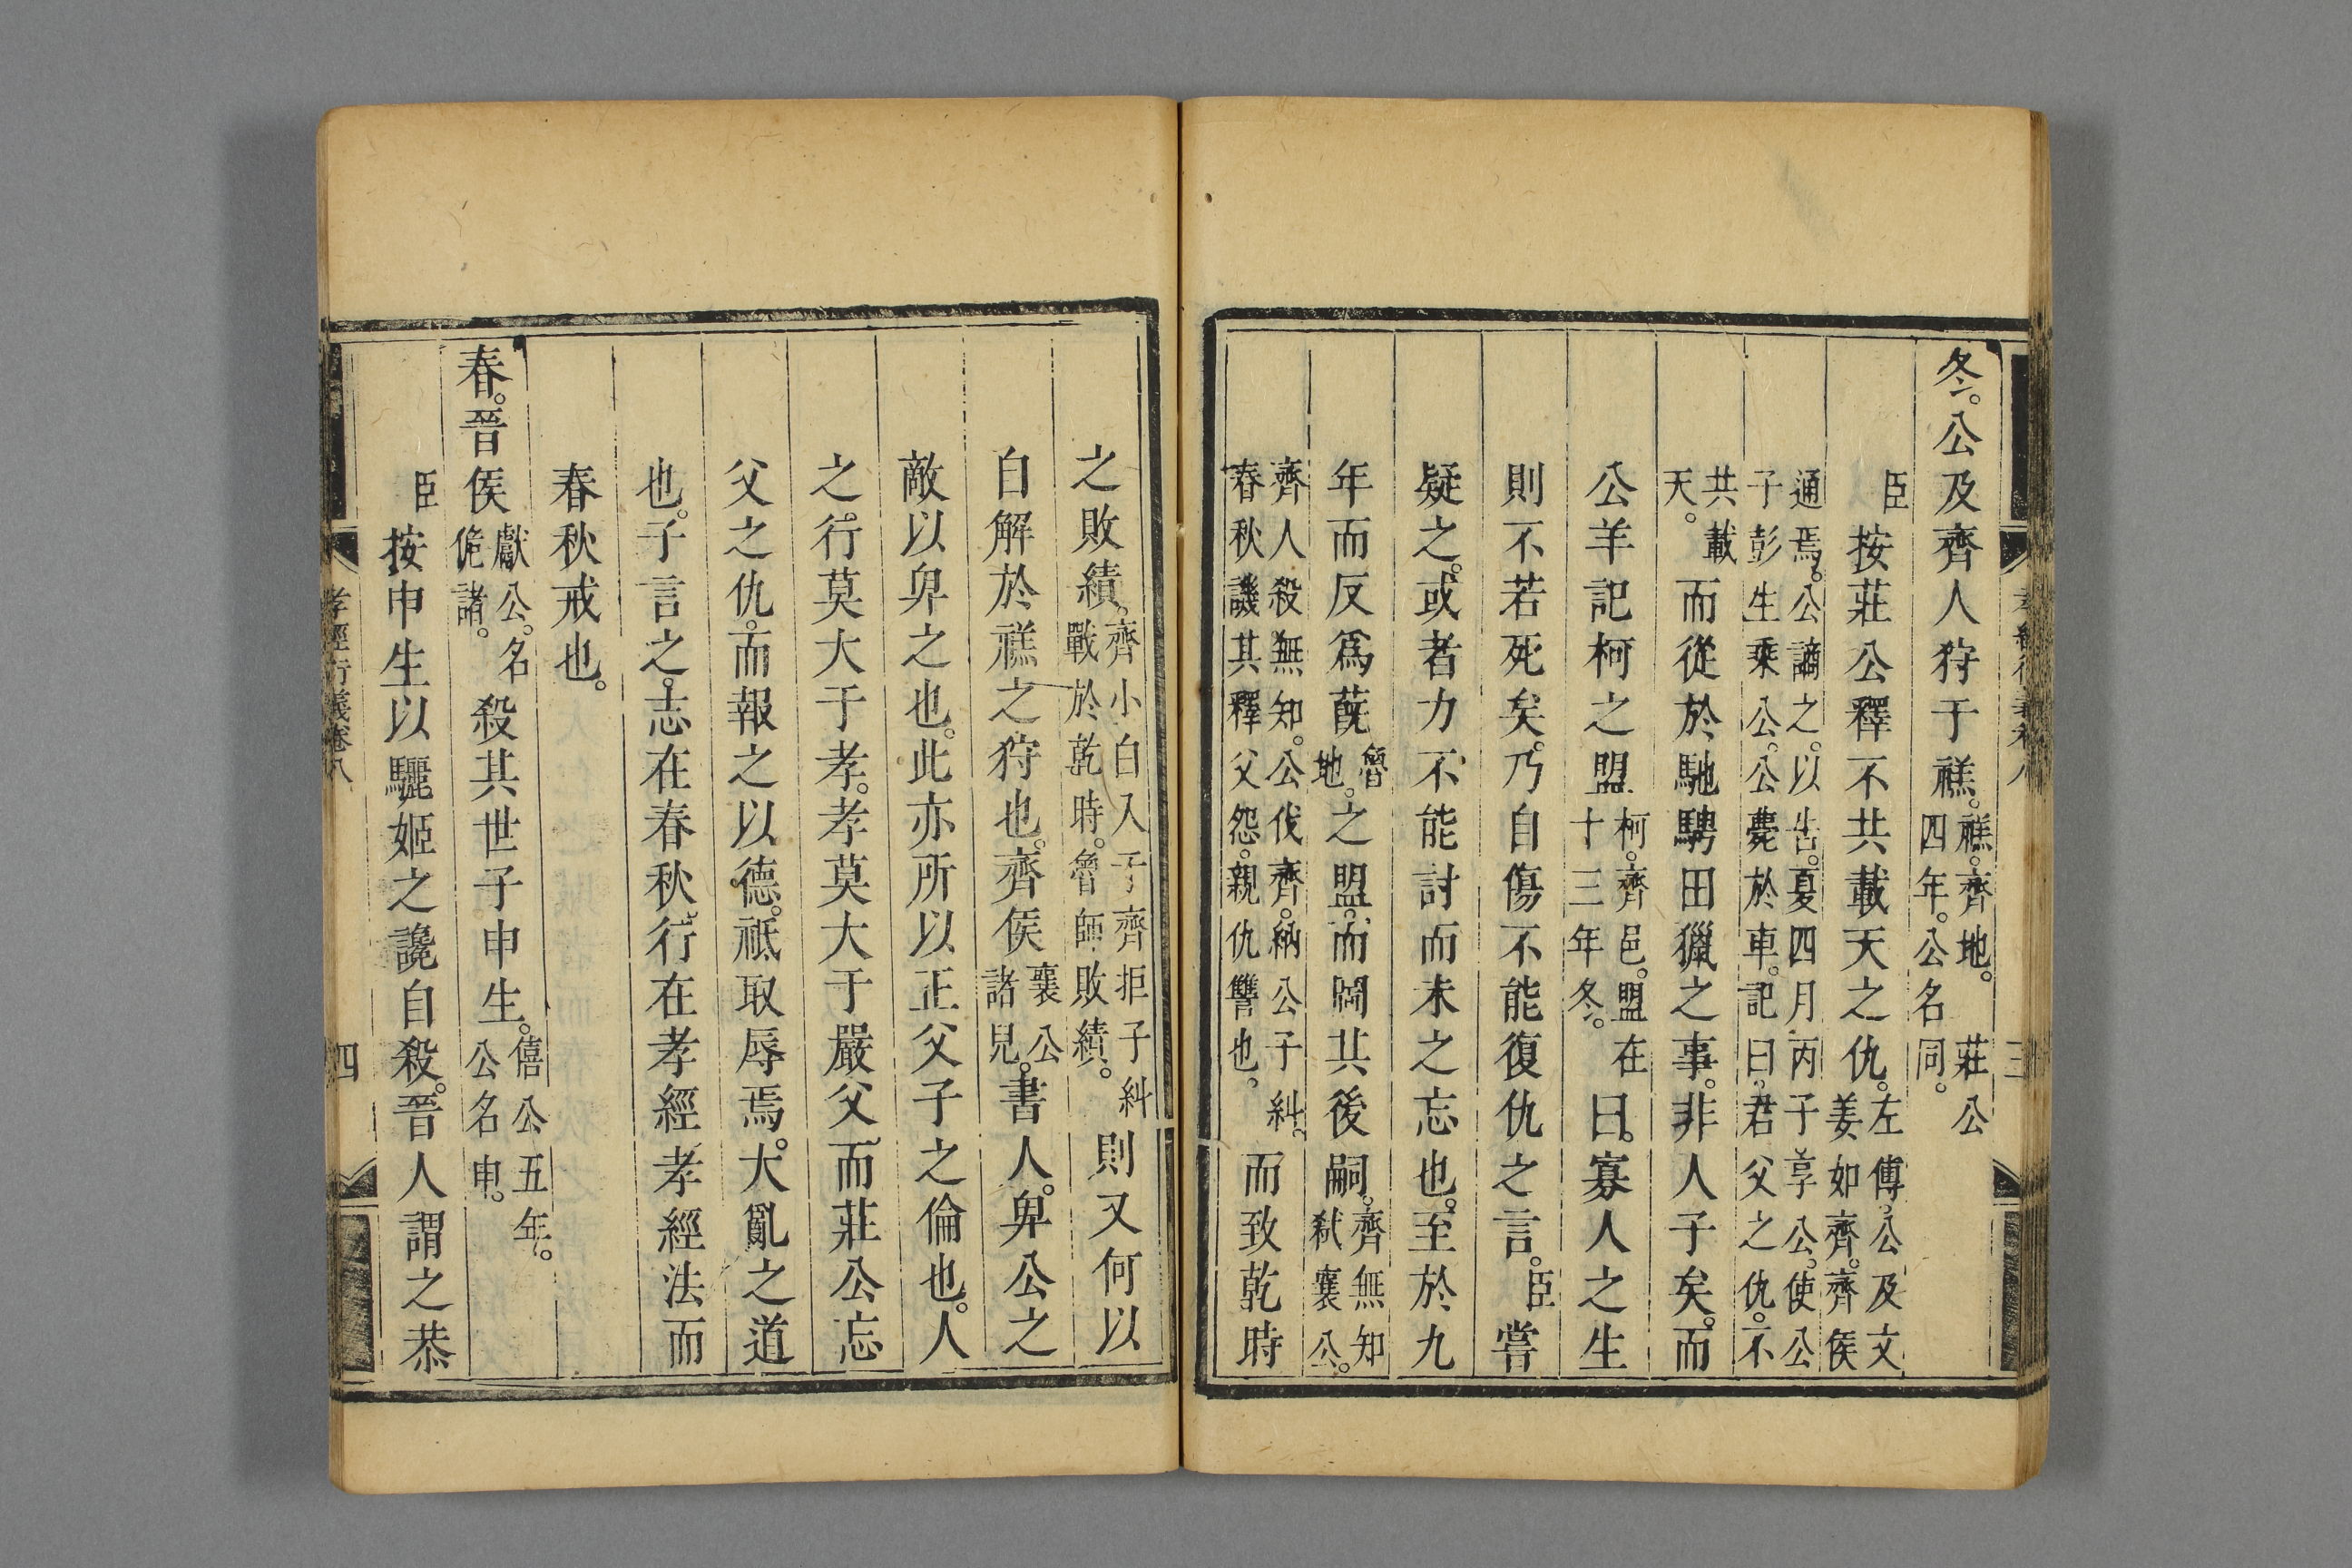 冬。公及齊人狩于禚。禚。齊地。莊公四年。公名同。
臣按莊公釋不共載天之仇。左傳。公及文姜如齊。齊侯
通焉。公謫之。以告。夏四月丙子享公。使公子彭生乘公。公薨於車。記曰。君父之仇。不
共載天。而從於馳騁田獵之事。非人子矣。而
公羊記柯之盟柯。齊邑。盟在十三年冬。曰。寡人之生
則不若死矣。乃自傷不能復仇之言。臣嘗
疑之。或者力不能討而未之忘也。至於九
年而反爲蔇魯地。之盟。而圖共後嗣。齊無知弑襄公。
齊人殺無知。公伐齊。納公子糾。春秋譏其釋父怨。親仇讐也。而致乾時
之敗績。齊小白入于齊拒子糾戰於乾時。魯師敗績。則又何以
自解於禚之狩也。齊侯襄公諸兒。書人。卑公之
敵以卑之也。此亦所以正父子之倫也。人
之行莫大于孝。孝莫大于嚴父而莊公忘
父之仇。而報之以德。祗取辱焉。大亂之道
也。子言之。志在春秋。行在孝經孝經法而
春秋戒也。
春。晉侯獻公。名佹諸。殺其世子申生。僖公五年。公名申。
臣按申生以驪姬之讒自殺。晉人謂之恭
孝經衍義卷八
四